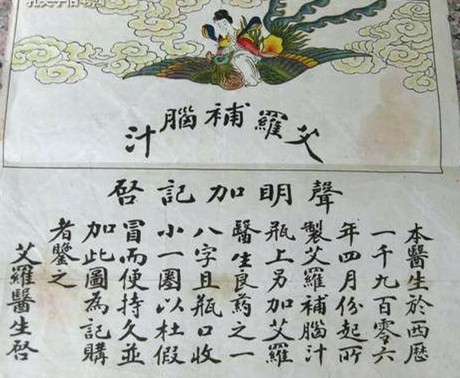 艾羅補腦汁
聲明加記啓
本醫生於西歷
一千九百零六
年四月份起所
製艾羅補腦汁
瓶上另加艾羅
醫生良药之一
八字且瓶口收
小一圈以杜假
冒而便持久並
加此圖為記購
者鑒之
艾羅醫生啓